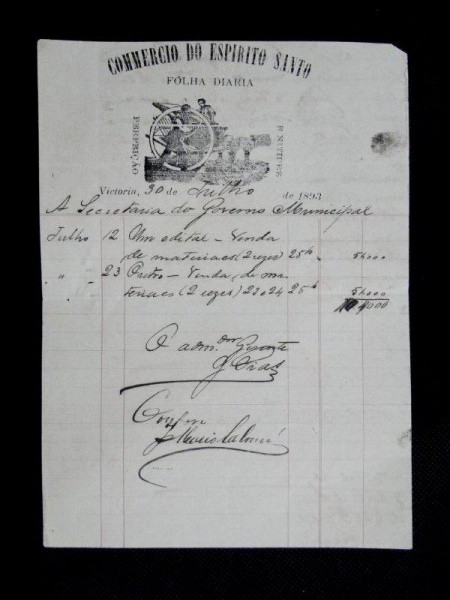 COMMERCIO DO ESPIRITO SANTO
FOLHA DIARIA
PERFEIÇÃO
Victoria, 30 de Julho de 1893
A Secretaria do Governo Municipal
Julho 12 Um edital — Venda
de materiaes (2 vezes) 25 5$000
" 23 Outro — Venda de ma
teriaes (2 vezes) 23 e 24 25 5$000
10$000
O adm.dor Gerente